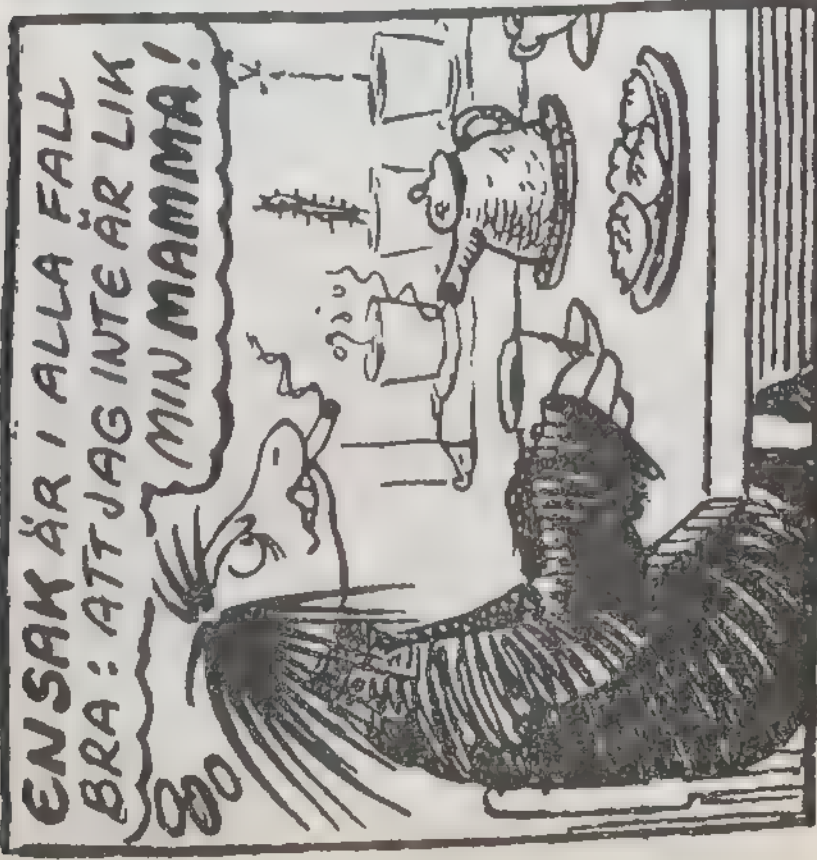 EN SAK ÄR I ALLA FALL
BRA: ATT JAG INTE ÄR LIK
MIN MAMMA!